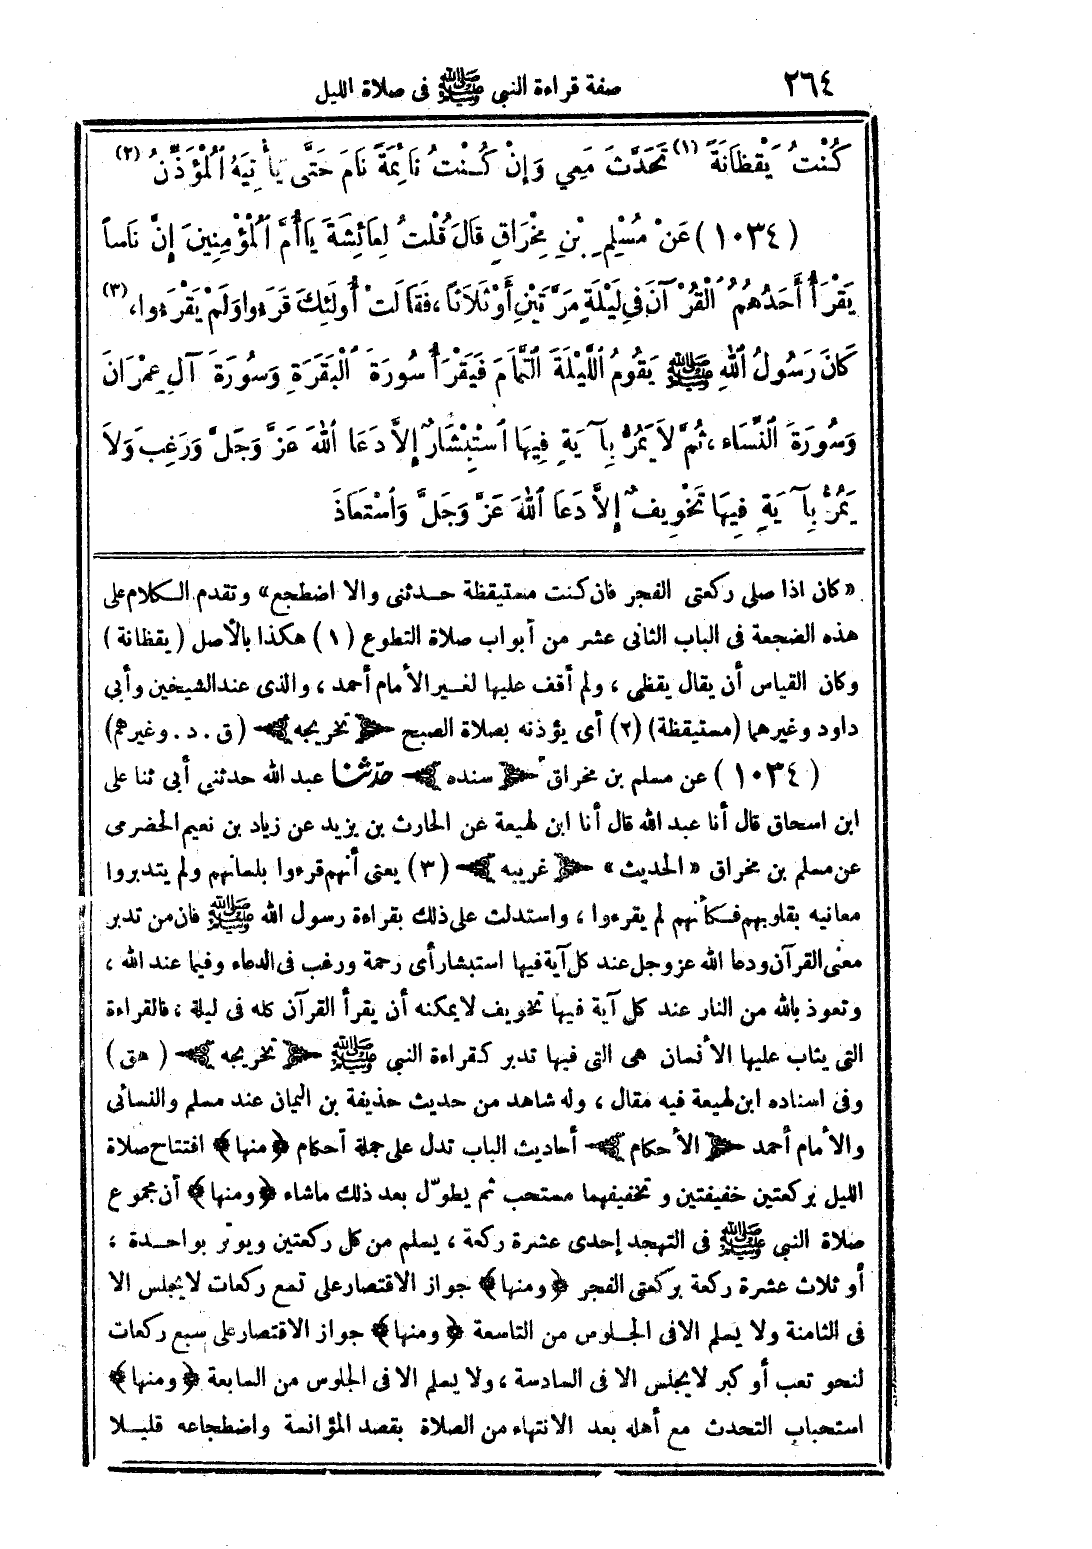 ٢٦٤ صفة قراءة النبى ﷺ فى صلاة الليل
كُنْتُ يَقْظَانَةً (١) تَحَدَّثَ مَعِي وَإِنْ كُنْتُ نَائِمَةً نَامَ حَتَّى يَأْتِيَهُ ٱلْمُؤَذِّنُ (٢)
(١٠٣٤) عَنْ مُسْلِمِ بْنِ مِخْرَاقٍ قَالَ قُلْتُ لِعَائِشَةَ يَاأُمَّ ٱلْمُؤْمِنِينَ إِنَّ نَاساً
يَقْرَأُ أَحَدُهُمُ ٱلْقُرْآنَ فِي لَيْلَةٍ مَرَّتَيْنِ أَوْ ثَلَاثاً ، فَقَالَتْ أُولَئِكَ قَرَءُوا وَلَمْ يَقْرَءُوا ، (٣)
كَانَ رَسُولُ ٱللهِ ﷺ يَقُومُ ٱللَّيْلَةَ ٱلتَّمَامَ فَيَقْرَأُ سُورَةَ ٱلْبَقَرَةِ وَسُورَةَ آلِ عِمْرَانَ
وَسُورَةَ ٱلنِّسَاءِ ، ثُمَّ لاَ يَمُرُّ بِآيَةٍ فِيهَا ٱسْتِبْشَارٌ إِلاَّ دَعَا ٱللهَ عَزَّ وَجَلَّ وَرَغِبَ وَلاَ
يَمُرُّ بِآيَةٍ فِيهَا تَخْوِيفٌ إِلاَّ دَعَا ٱللهَ عَزَّ وَجَلَّ وَٱسْتَعَاذَ
«كان اذا صلى ركعتى الفجر فان كنت مستيقظة حدثنى والا اضطجع» وتقدم الكلام على
هذه الضجعة فى الباب الثانى عشر من أبواب صلاة التطوع (١) هكذا بالأصل (يقظانة)
وكان القياس أن يقال يقظى ، ولم أقف عليها لغير الأمام أحمد ، والذى عند الشيخين وأبى
داود وغيرهما (مستيقظة) (٢) أى يؤذنه بصلاة الصبح ﴿تخريجه﴾ (ق . د . وغيرهم)
(١٠٣٤) عن مسلم بن مخراق ﴿سنده﴾ حدّثنا عبد الله حدثني أبى ثنا على
ابن اسحاق قال أنا عبد الله قال أنا ابن لهيعة عن الحارث بن يزيد عن زياد بن نعيم الحضرمى
عن مسلم بن مخراق «الحديث» ﴿غريبه﴾ (٣) يعنى أنهم قرءوا بلسانهم ولم يتدبروا
معانيه بقلوبهم فكأنهم لم يقرءوا ، واستدلت على ذلك بقراءة رسول الله ﷺ فان من تدبر
معنى القرآن ودعا الله عز وجل عند كل آية فيها استبشار أى رحمة ورغب فى الدعاء وفيما عند الله ،
وتعوذ بالله من النار عند كل آية فيها تخويف لا يمكنه أن يقرأ القرآن كله فى ليلة ، فالقراءة
التى يثاب عليها الأنسان هى التى فيها تدبر كقراءة النبى ﷺ ﴿تخريجه﴾ (هق)
وفى اسناده ابن لهيعة فيه مقال ، وله شاهد من حديث حذيفة بن اليمان عند مسلم والنسائى
والأمام أحمد ﴿الأحكام﴾ أحاديث الباب تدل على جملة أحكام ﴿منها﴾ افتتاح صلاة
الليل بركعتين خفيفتين وتخفيفهما مستحب ثم يطوّل بعد ذلك ماشاء ﴿ومنها﴾ أن مجموع
صلاة النبى ﷺ فى التهجد إحدى عشرة ركعة ، يسلم من كل ركعتين ويوتر بواحدة ،
أو ثلاث عشرة ركعة بركعتى الفجر ﴿ومنها﴾ جواز الاقتصار على تسع ركعات لا يجلس الا
فى الثامنة ولا يسلم الا فى الجلوس من التاسعة ﴿ومنها﴾ جواز الاقتصار على سبع ركعات
لنحو تعب أو كبر لا يجلس الا فى السادسة ، ولا يسلم الا فى الجلوس من السابعة ﴿ومنها﴾
استحباب التحدث مع أهله بعد الانتهاء من الصلاة بقصد المؤانسة واضطجاعه قليلا